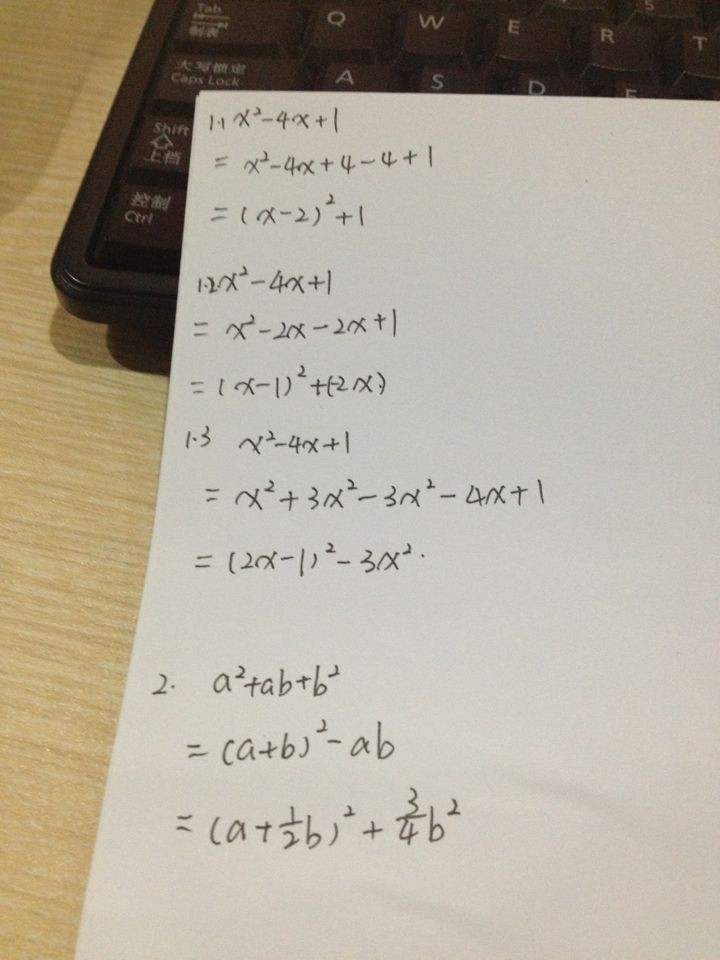 Tab
制表
Q W E R T
5
大写锁定
Caps Lock
A S D F
Shift
上档
控制
Ctrl
1.1 x²-4x+1
= x²-4x+4-4+1
= (x-2)²+1
1.2 x²-4x+1
= x²-2x-2x+1
= (x-1)²+(-2x)
1.3 x²-4x+1
= x²+3x²-3x²-4x+1
= (2x-1)²-3x².
2. a²+ab+b²
= (a+b)²-ab
= (a+½b)²+¾b²